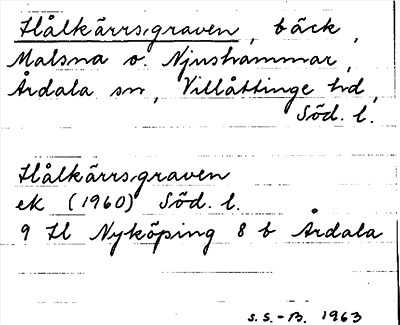 Hålkärrsgraven, bäck,
Malsna o. Njushammar,
Årdala sn, Villåttinge hd,
Söd. l.
Hålkärrsgraven
ek (1960) Söd. l.
9 H Nyköping 8 b Årdala
S.S.-B. 1963